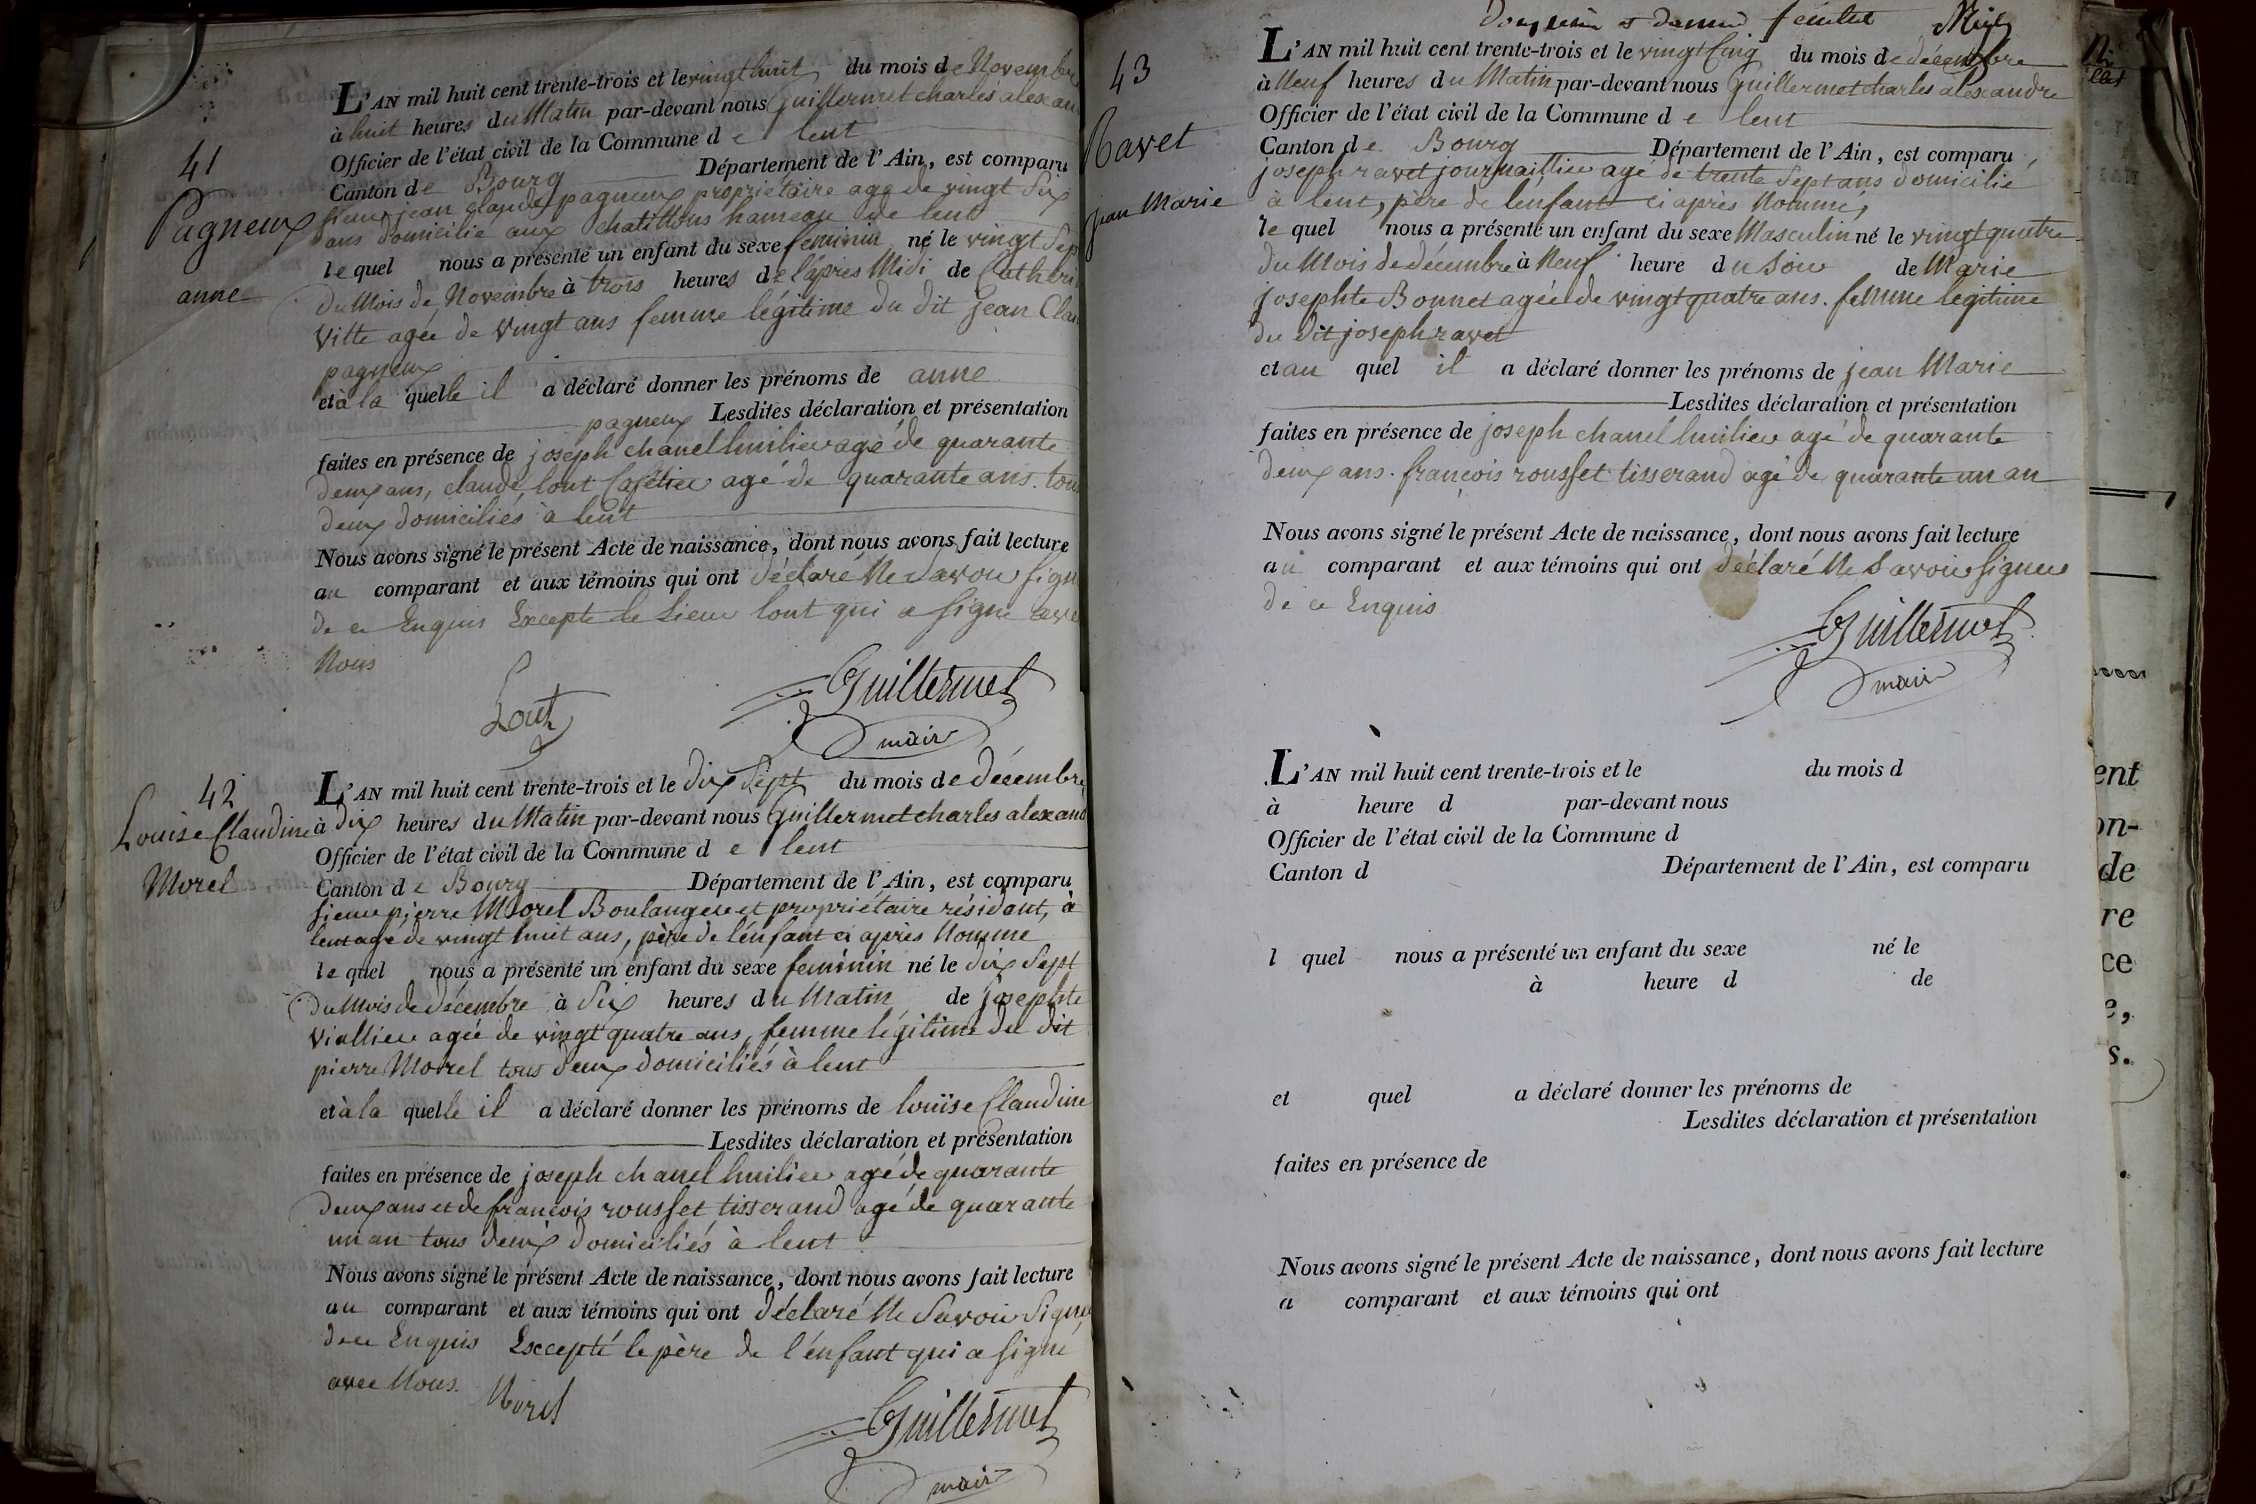 41
Pagneux
anne
L'AN mil huit cent trente-trois et le vingt huit du mois de Novembre
à huit heures du Matin par-devant nous Guillermet charles alexan
Officier de l'état civil de la Commune de lent
Canton de Bourg Département de l'Ain, est comparu
sieur jean claude pagneux propriétaire agé de vingt Six
ans domicilié aux chatillons hameau de lent
le quel nous a présenté un enfant du sexe feminin né le vingt Sep
du Mois de Novembre à trois heures de l'après Midi de Catheri
Vitte agée de vingt ans femme légitime du dit jean Clau
pagneux
et à la quelle il a déclaré donner les prénoms de anne
pagneux Lesdites déclaration et présentation
faites en présence de joseph chanel huilier agé de quarante
deux ans, claude lout Cafetier agé de quarante ans. tous
deux domiciliés à lent
Nous avons signé le présent Acte de naissance, dont nous avons fait lecture
au comparant et aux témoins qui ont déclaré Ne Savoir Signe
de ce Enquis Excepté le Sieur lout qui a signé avec
Nous
Lout
Guillermet
maire
42
Louise Claudine
Morel
L'AN mil huit cent trente-trois et le dix Sept du mois de décembre
à dix heures du Matin par-devant nous Guillermet charles alexand
Officier de l'état civil de la Commune de lent
Canton de Bourg Département de l'Ain, est comparu
sieur pierre Morel Boulanger et propriétaire résidant, à
lent agé de vingt huit ans, père de l'énfant ci après Nomme
le quel nous a présenté un enfant du sexe feminin né le dix Sept
du Mois de décembre à Six heures du Matin de josephte
Viallier agée de vingt quatre ans, femme légitime du dit
pierre Morel tous deux domiciliés à lent
et à la quelle il a déclaré donner les prénoms de louise Claudine
Lesdites déclaration et présentation
faites en présence de joseph chanel huilier agé de quarante
deux ans et de françois rousset tisserand agé de quarante
un an tous deux domiciliés à lent
Nous avons signé le présent Acte de naissance, dont nous avons fait lecture
au comparant et aux témoins qui ont déclaré Ne Savoir Signer
de ce Enquis Excepté le père de l'énfant qui a signé
avec Nous.
Morel
Guillermet
maire
feuillet
43
Ravet
jean Marie
L'AN mil huit cent trente-trois et le vingt Cinq du mois de décembre
à Neuf heures du Matin par-devant nous Guillermet charles alexandre
Officier de l'état civil de la Commune de lent
Canton de Bourg Département de l'Ain, est comparu
joseph ravet journaillier agé de trente Sept ans domicilié
à lent, père de l'énfant ci après Nommé,
le quel nous a présenté un enfant du sexe Masculin né le vingt quatre
du Mois de décembre à Neuf heure du Soir de Marie
josephte Bonnet agée de vingt quatre ans. femme légitime
du dit joseph ravet
et au quel il a déclaré donner les prénoms de jean Marie
Lesdites déclaration et présentation
faites en présence de joseph chanel huilier agé de quarante
deux ans. françois rousset tisserand agé de quarante un an
Nous avons signé le présent Acte de naissance, dont nous avons fait lecture
au comparant et aux témoins qui ont déclaré Ne Savoir signer
de ce Enquis
Guillermet
maire
L'AN mil huit cent trente-trois et le du mois d
à heure d par-devant nous
Officier de l'état civil de la Commune d
Canton d Département de l'Ain, est comparu
l quel nous a présenté un enfant du sexe né le
à heure d de
et quel a déclaré donner les prénoms de
Lesdites déclaration et présentation
faites en présence de
Nous avons signé le présent Acte de naissance, dont nous avons fait lecture
a comparant et aux témoins qui ont
ent
on-
de
re
ce
e,
s.